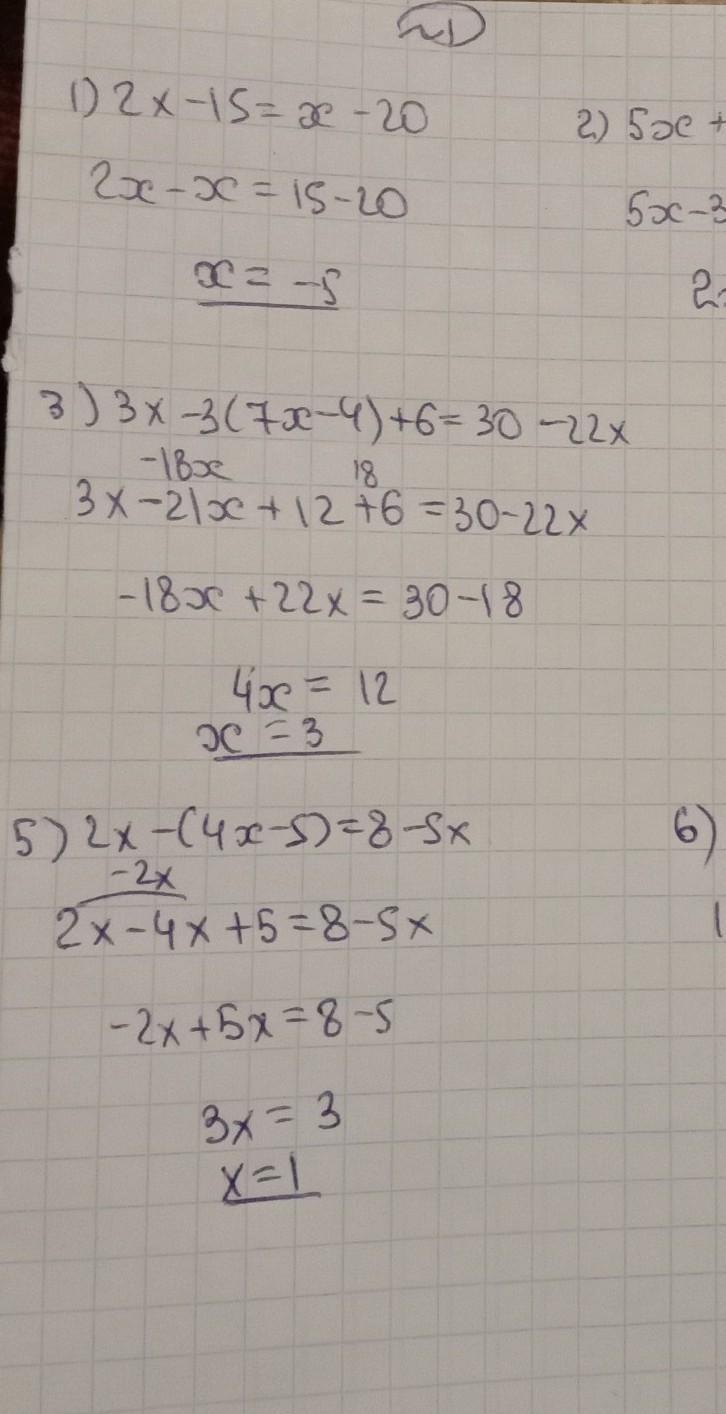 1) 2x - 15 = x - 20
2x - x = 15 - 20
x = -5
2) 5x +
5x - 3
2
3) 3x - 3(7x - 4) + 6 = 30 - 22x
-18x 18
3x - 21x + 12 + 6 = 30 - 22x
-18x + 22x = 30 - 18
4x = 12
x = 3
5) 2x - (4x - 5) = 8 - 5x
-2x
2x - 4x + 5 = 8 - 5x
-2x + 5x = 8 - 5
3x = 3
x = 1
6)
1